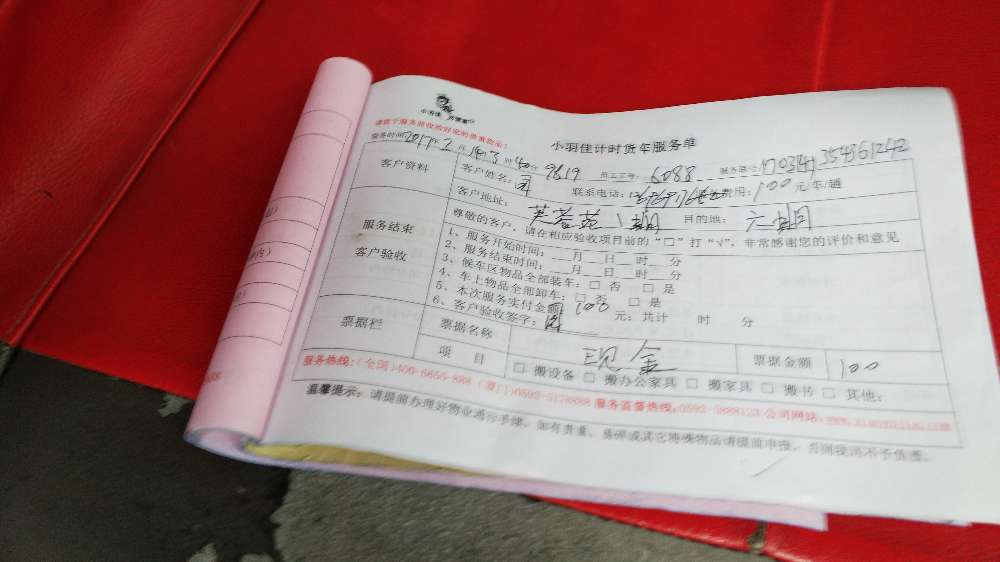 小羽佳
小羽佳计时货车服务单
服务时间 2017年2月 时40分 9819 员工工号: 6088
客户资料 客户姓名: 联系电话: 费用: 100元/车/趟
客户地址: 芙蓉苑 目的地: 六
服务结束
客户验收
尊敬的客户,请在相应验收项目前的“□”打“√”,非常感谢您的评价和意见
1、服务开始时间:___月___日___时___分
2、服务结束时间:___月___日___时___分
3、候车区物品全部装车:□ 否 □ 是
4、车上物品全部卸车:□ 否 □ 是
5、本次服务实付金额 100 元;共计 时 分
6、客户验收签字:
票据栏 票据名称 现金 票据金额 100
项 目 □ 搬设备 □ 搬办公家具 □ 搬家具 □ 搬书 □ 其他:
服务热线:(全国)400-6655-888 (厦门)0592-5178888 服务监督热线:0592-5888123 公司网站:
温馨提示:请提前办理好物业通行手续,如有贵重、易碎或其它特殊物品请提前申报,否则我司不予负责。